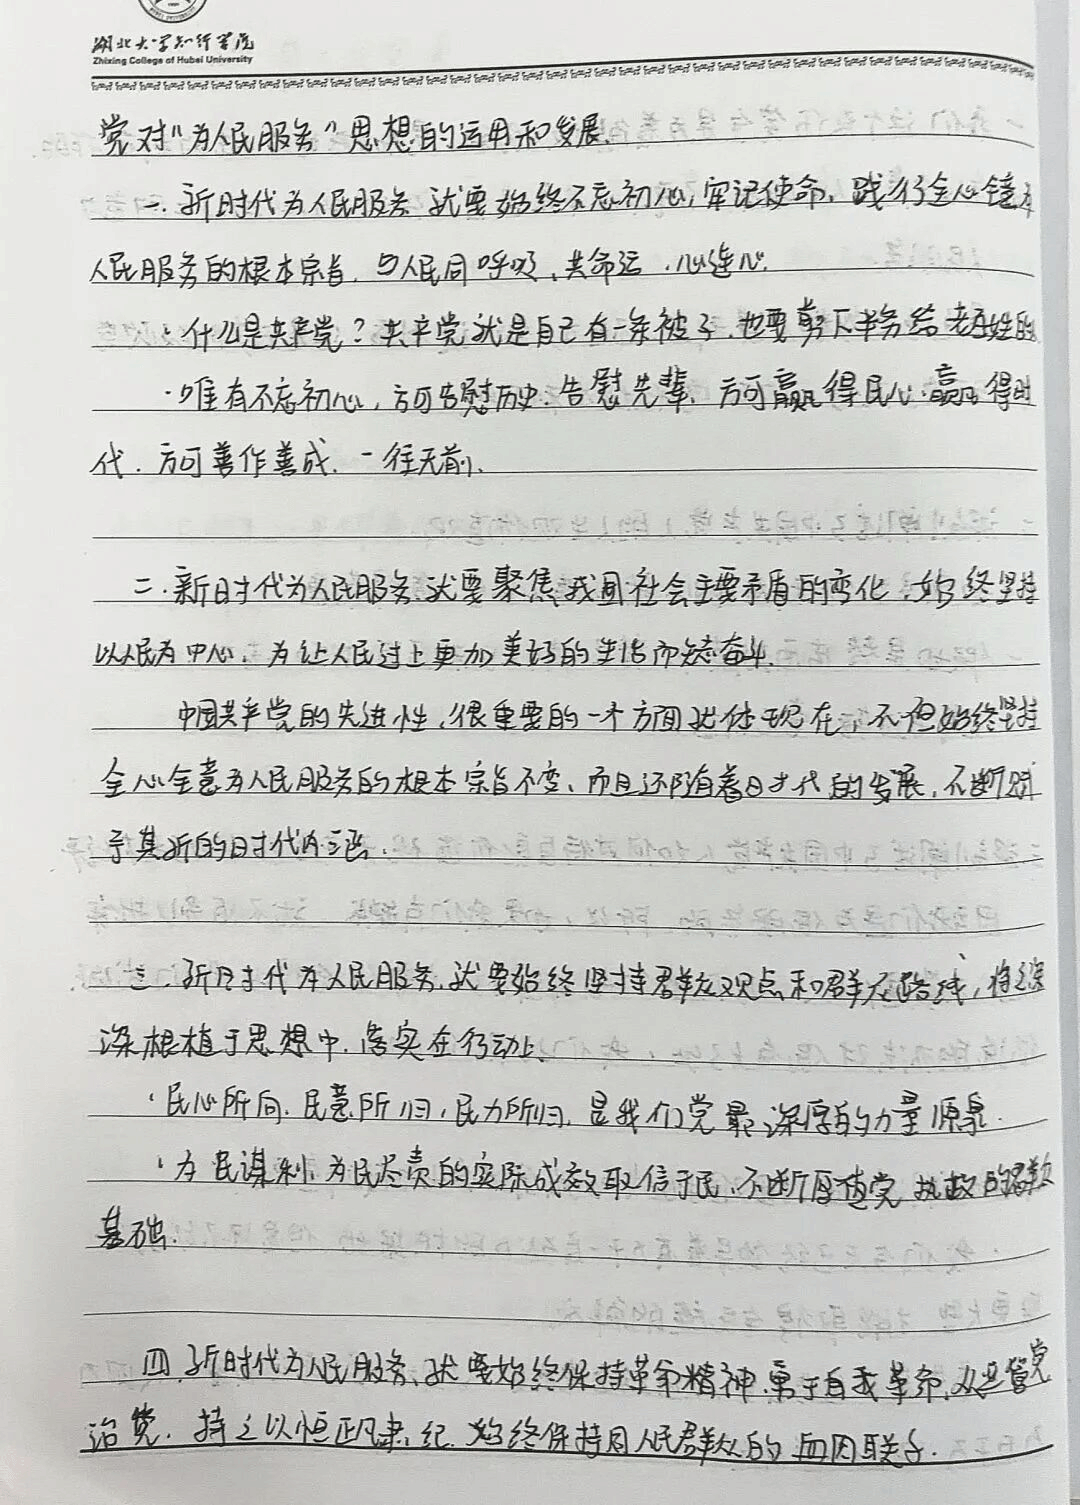 湖北大学知行学院
Zhixing College of Hubei University
党对“为人民服务”思想的运用和发展.
一. 新时代为人民服务 就要始终不忘初心, 牢记使命. 践行全心全意为
人民服务的根本宗旨. 与人民同呼吸、共命运、心连心.
· 什么是共产党? 共产党就是自己有一条被子, 也要剪下半条给老百姓的
· 唯有不忘初心, 方可告慰历史、告慰先辈、方可赢得民心、赢得时
代. 方可善作善成、一往无前、
二. 新时代为人民服务 就要聚焦我国社会主要矛盾的变化. 始终坚持
以人民为中心. 为让人民过上更加美好的生活而矢志奋斗.
中国共产党的先进性, 很重要的一个方面就体现在, 不但始终坚持
全心全意为人民服务的根本宗旨不变、而且还随着时代的发展, 不断赋
予其新的时代内涵.
三. 新时代为人民服务. 就要始终坚持群众观点和群众路线, 将之深
深根植于思想中. 落实在行动上.
· 民心所向. 民意所归, 民力所归, 是我们党最深厚的力量源泉.
· 为民谋利. 为民尽责的实际成效取信于民. 不断厚植党执政的群众
基础.
四. 新时代为人民服务、就要始终保持革命精神. 勇于自我革命. 从严管党
治党. 持之以恒正风肃纪. 始终保持同人民群众的血肉联系.